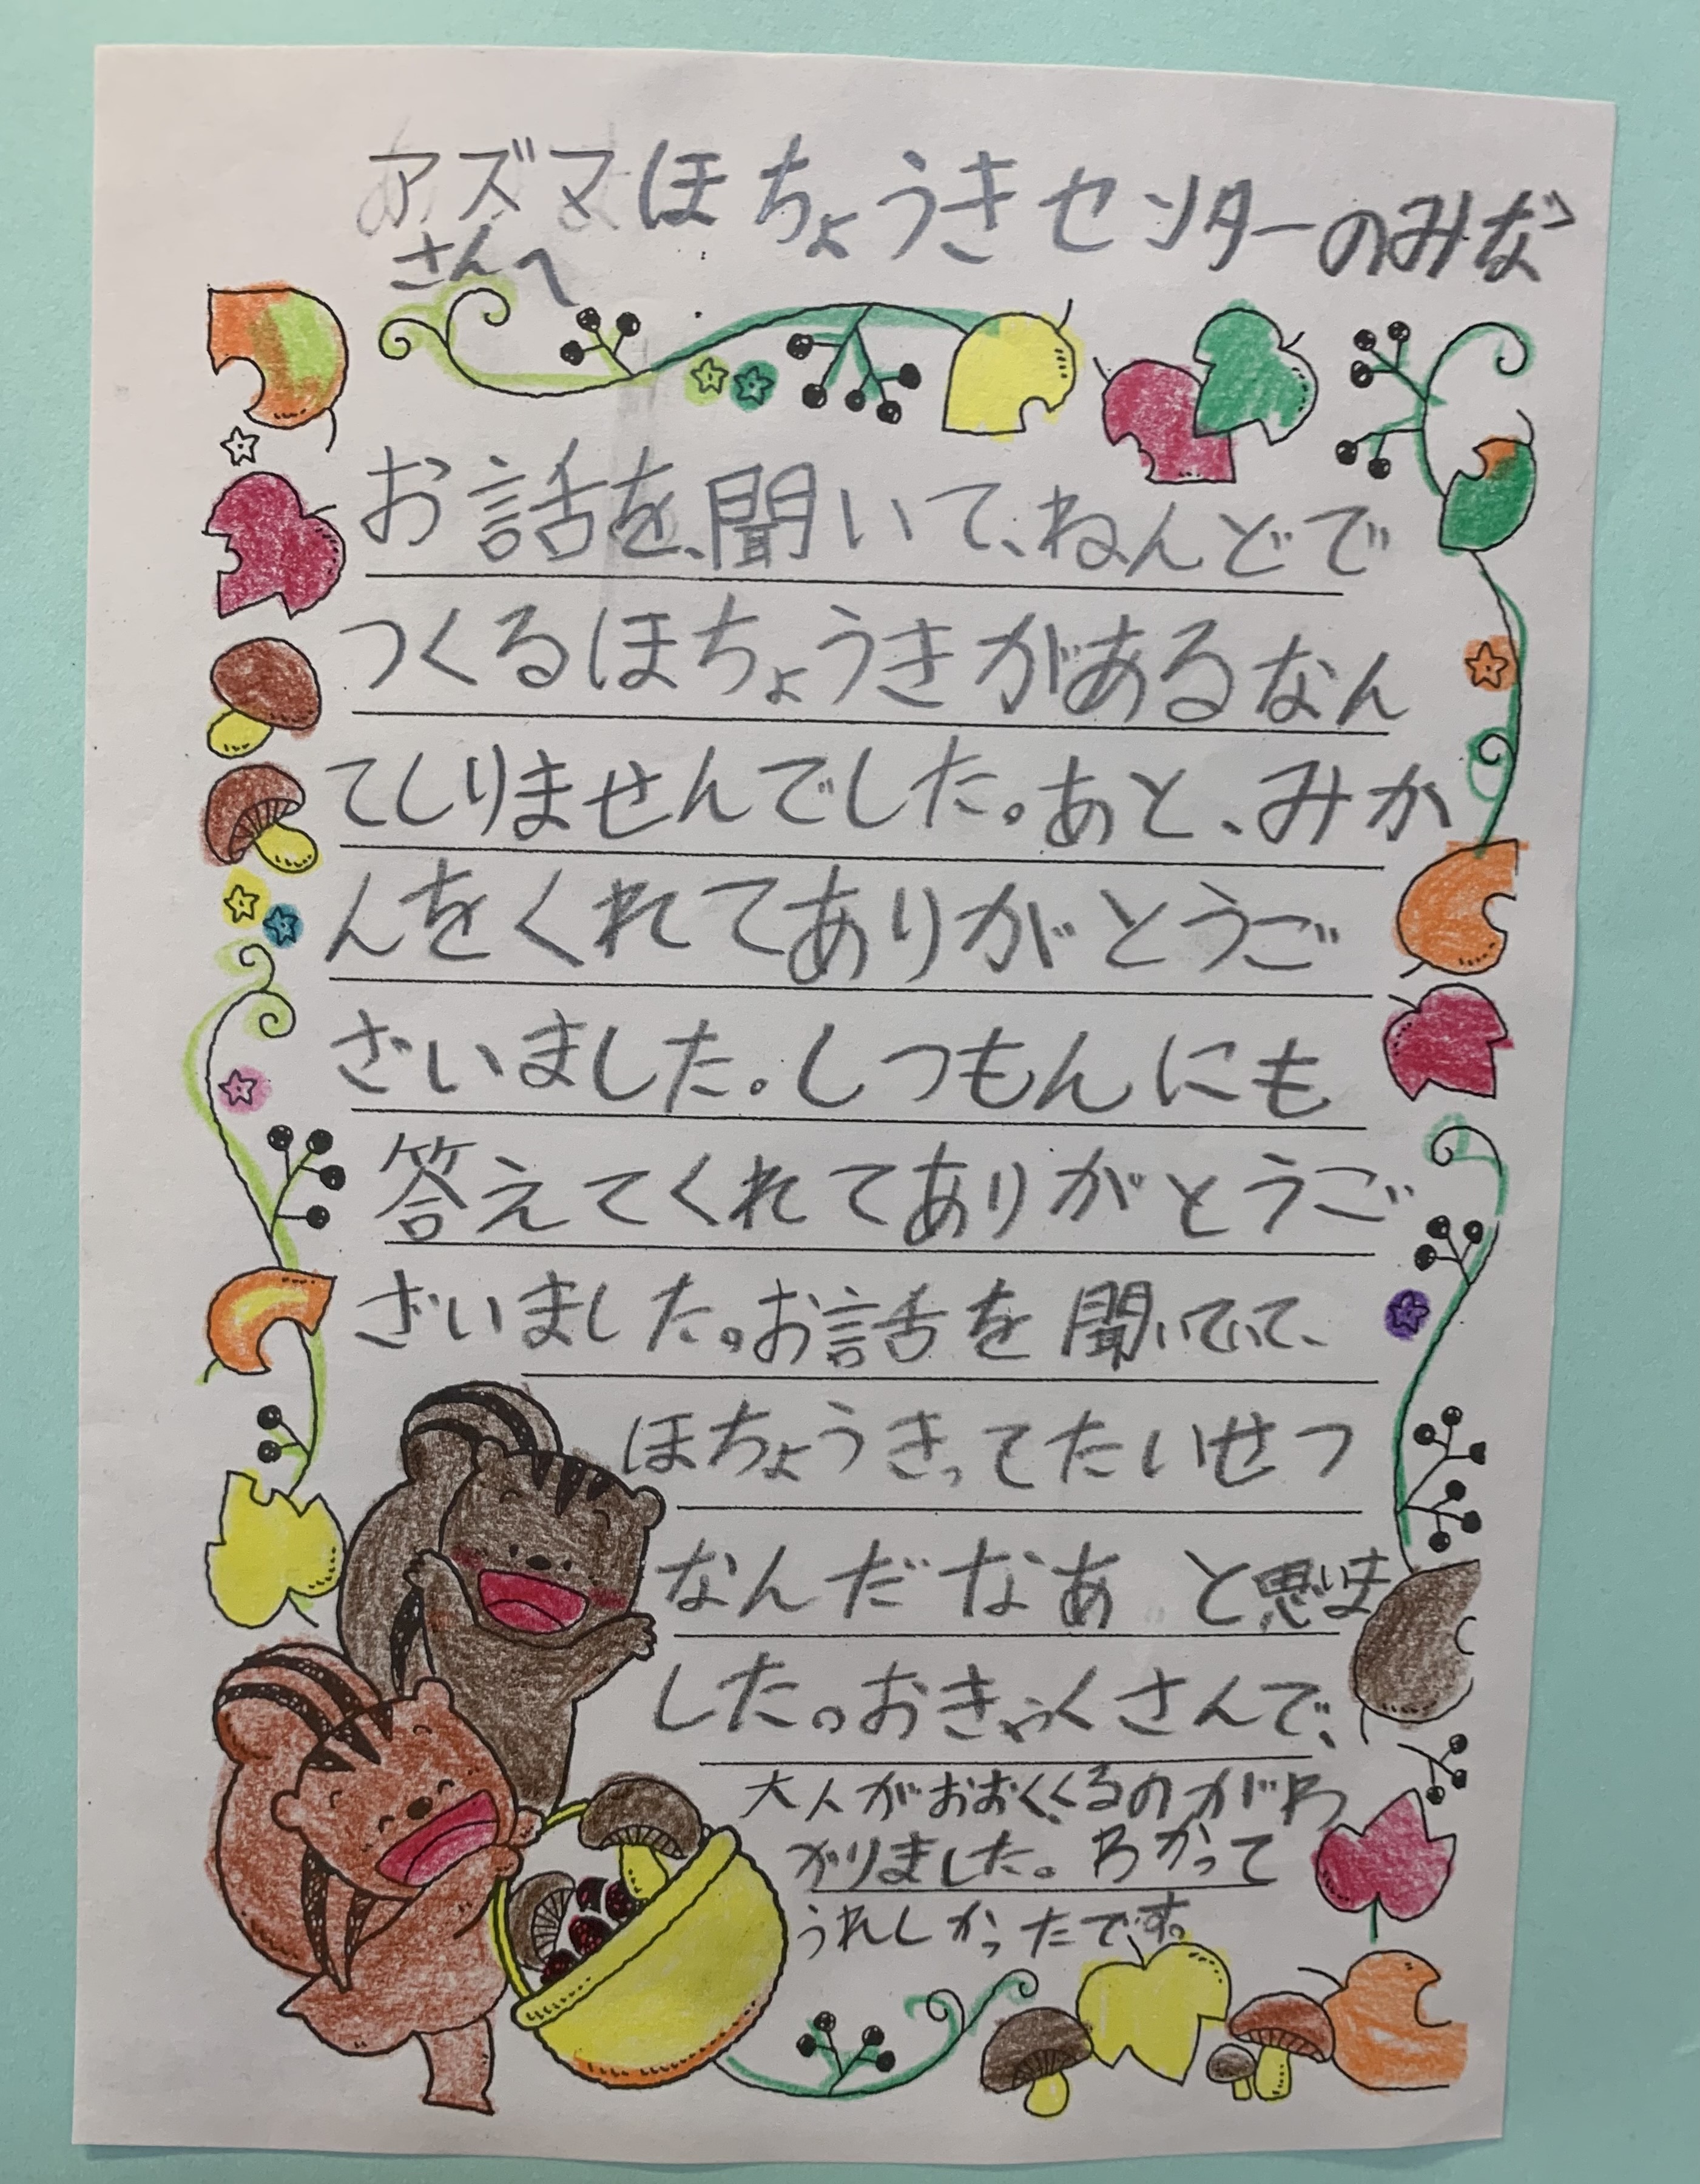 アズマほちょうきセンターのみな
さんへ
お話を、聞いて、ねんどで
つくるほちょうきがあるなん
てしりませんでした。あと、みか
んをくれてありがとうご
ざいました。しつもんにも
答えてくれてありがとうご
ざいました。お話を聞いていて、
ほちょうきってたいせつ
なんだなあ と思いま
した。おきゃくさんで、
大人がおおくくるのがわ
かりました。わかって
うれしかったです。